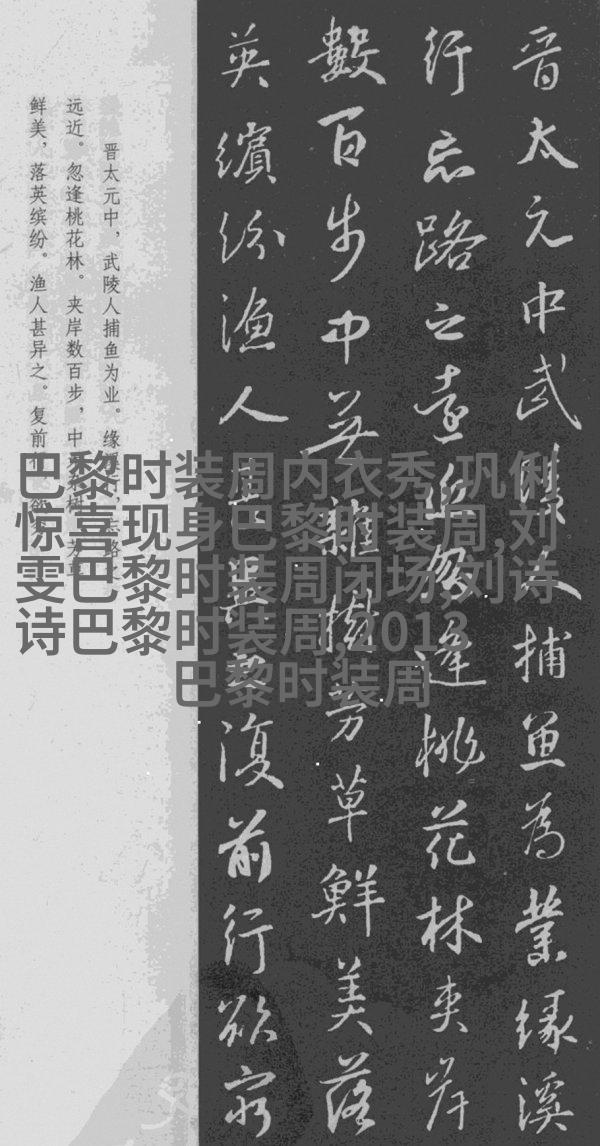 晉太元中武陵人捕魚為業緣溪
行忘路之遠近忽逢桃花林夾岸
數百步中無雜樹芳草鮮美落
英繽紛漁人甚異之復前行欲窮
晋太元中，武陵人捕鱼为业。缘溪行，忘路之
远近。忽逢桃花林。夹岸数百步，中无杂树，芳草
鲜美，落英缤纷。渔人甚异之。复前行，欲
巴黎时装周内衣秀,巩俐
惊喜现身巴黎时装周,刘
雯巴黎时装周闭场,刘诗
诗巴黎时装周,2013
巴黎时装周